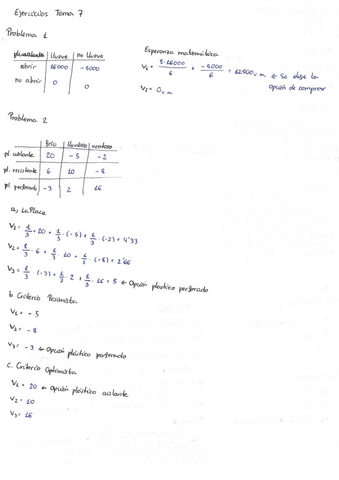 Ejercicios Tema 7
Problema 1
llueve no llueve
abrir 16000 -5000
no abrir 0 0
Esperanza matemática
V₁ = 5·16000/6 + -5000/6 = 12500 u.m. ← Se elige la
opción de comprar
V₂ = 0 u.m
Problema 2
Frío lluvioso ventoso
pl. aislante 20 -5 -2
pl. resistente 6 10 -8
pl. perforado -3 2 16
a) LaPlace
V₁ = 1/3 · 20 + 1/3 · (-5) + 1/3 · (-2) = 4'33
V₂ = 1/3 · 6 + 1/3 · 10 + 1/3 · (-8) = 2'66
V₃ = 1/3 · (-3) + 1/3 · 2 + 1/3 · 16 = 5 ← Opción plástico perforado
b Criterio Pesimista
V₁ = -5
V₂ = -8
V₃ = -3 ← Opción plástico perforado
c. Criterio Optimista
V₁ = 20 ← Opción plástico aislante
V₂ = 10
V₃ = 16